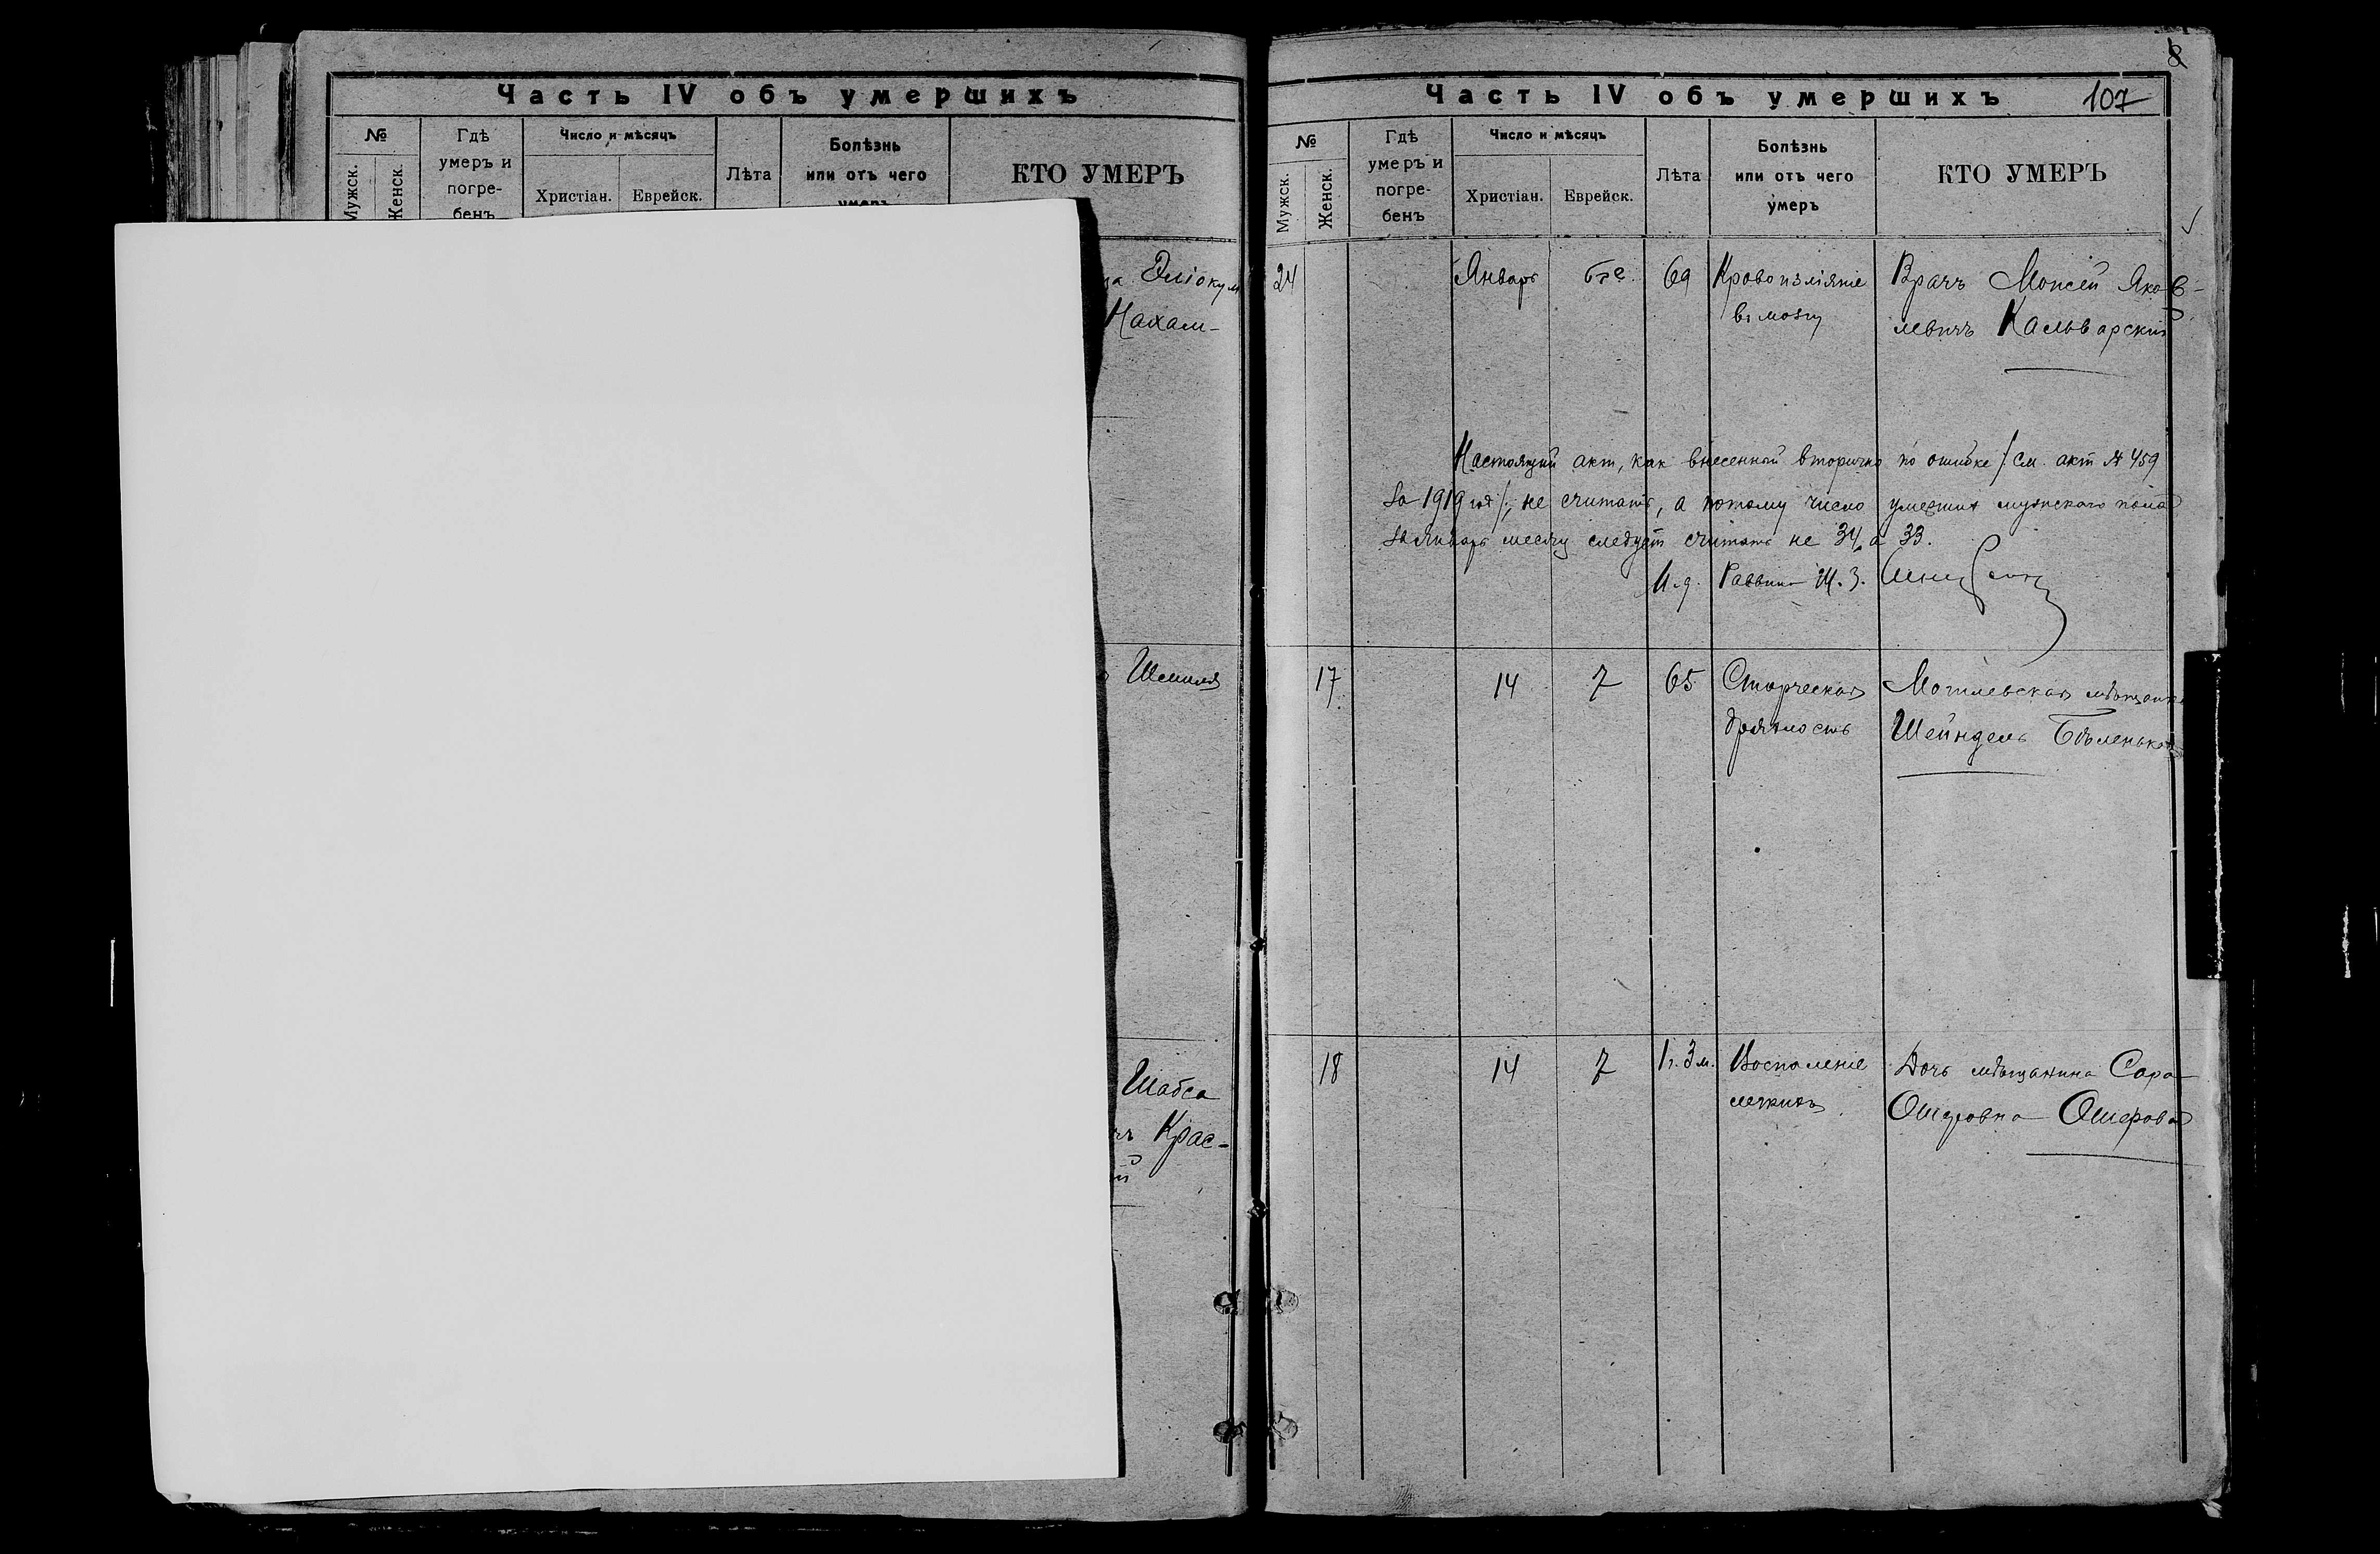 Часть IV объ умершихъ
№
Мужск.
Женск.
Гдѣ
умеръ и
погре-
бенъ
Число и мѣсяцъ
Христіан.
Еврейск.
Лѣта
Болѣзнь
или отъ чего
умеръ
КТО УМЕРЪ
Эліокум
Нахам-
Шемиля
Шабса
Крас-
8
Часть IV объ умершихъ
107
№
Мужск.
Женск.
Гдѣ
умеръ и
погре-
бенъ
Число и мѣсяцъ
Христіан.
Еврейск.
Лѣта
Болѣзнь
или отъ чего
умеръ
КТО УМЕРЪ
24
Январь
69
Кровоизліяніе
въ мозгу
Врачъ Моисей Яков-
левичъ Кальварскій
Настоящий акт, как внесенной вторично по ошибке /см. акт № 459
за 1919 год/, не считать, а потому число умерших мужского пола
за январь месяц следует считать не 34, а 33.
И.д. Раввина Ш. З.
17
14
7
65
Старческая
дряхлость
Могилевская мѣщанка
Шейндель Бѣленькая
18
14
7
1 г. 3 м.
Воспаленіе
легкихъ
Дочь мѣщанина Сара
Ошеровна Ошерова